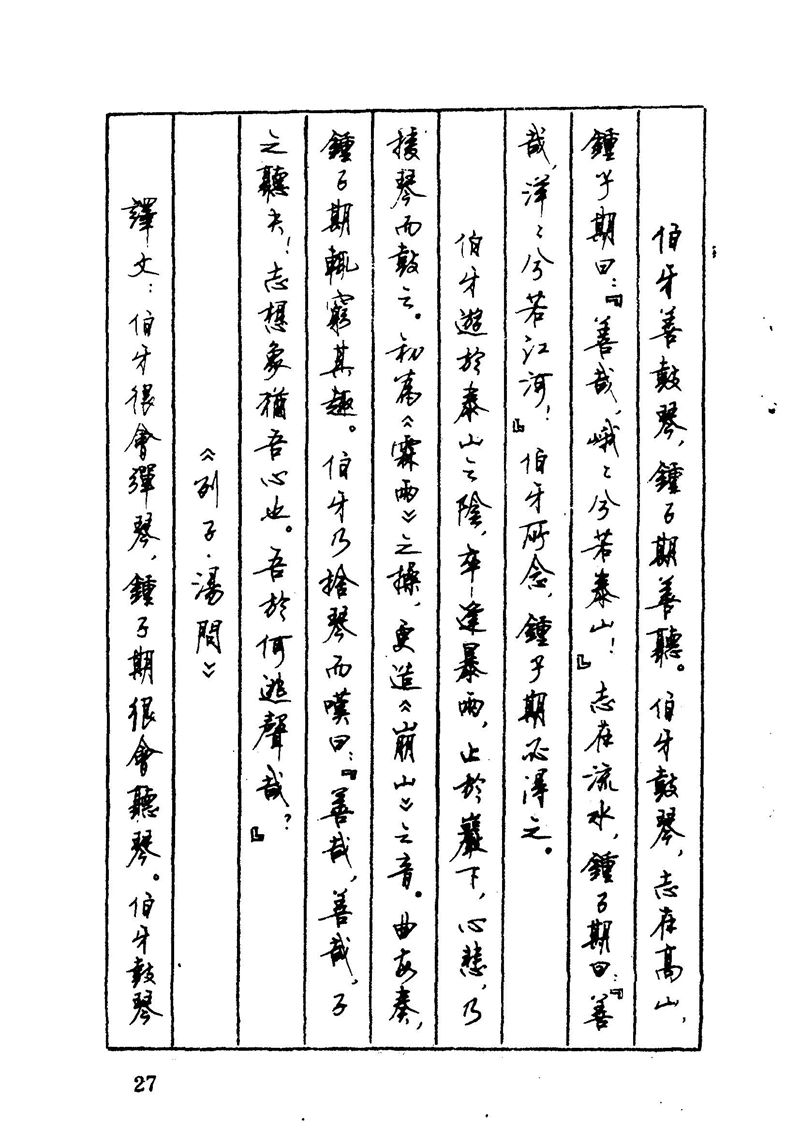 伯牙善鼓琴，鍾子期善聽。伯牙鼓琴，志在高山，
鍾子期曰：『善哉，峨〻兮若泰山！』志在流水，鍾子期曰：『善
哉，洋〻兮若江河！』伯牙所念，鍾子期必得之。
伯牙遊於泰山之陰，卒逢暴雨，止於巖下，心悲，乃
援琴而鼓之。初為《霖雨》之操，更造《崩山》之音。曲每奏，
鍾子期輒窮其趣。伯牙乃捨琴而嘆曰：『善哉，善哉，子
之聽夫！志想象猶吾心也。吾於何逃聲哉？』
《列子·湯問》
譯文：伯牙很會彈琴，鍾子期很會聽琴。伯牙鼓琴
27